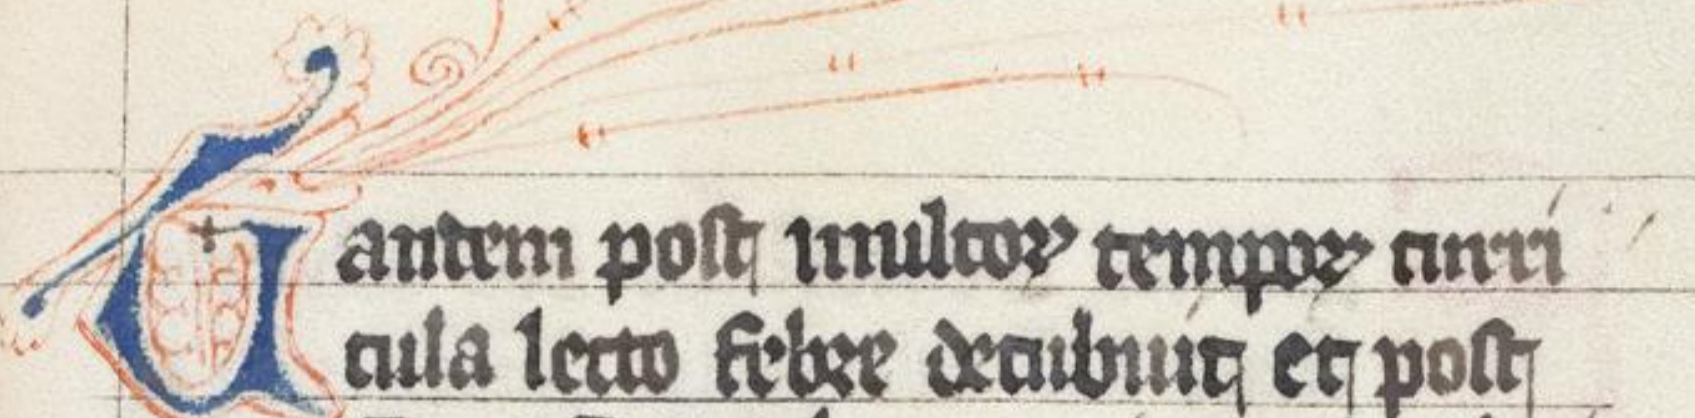 Tandem post multoꝝ tempoꝝ curri
cula lecto febre decubuit et post